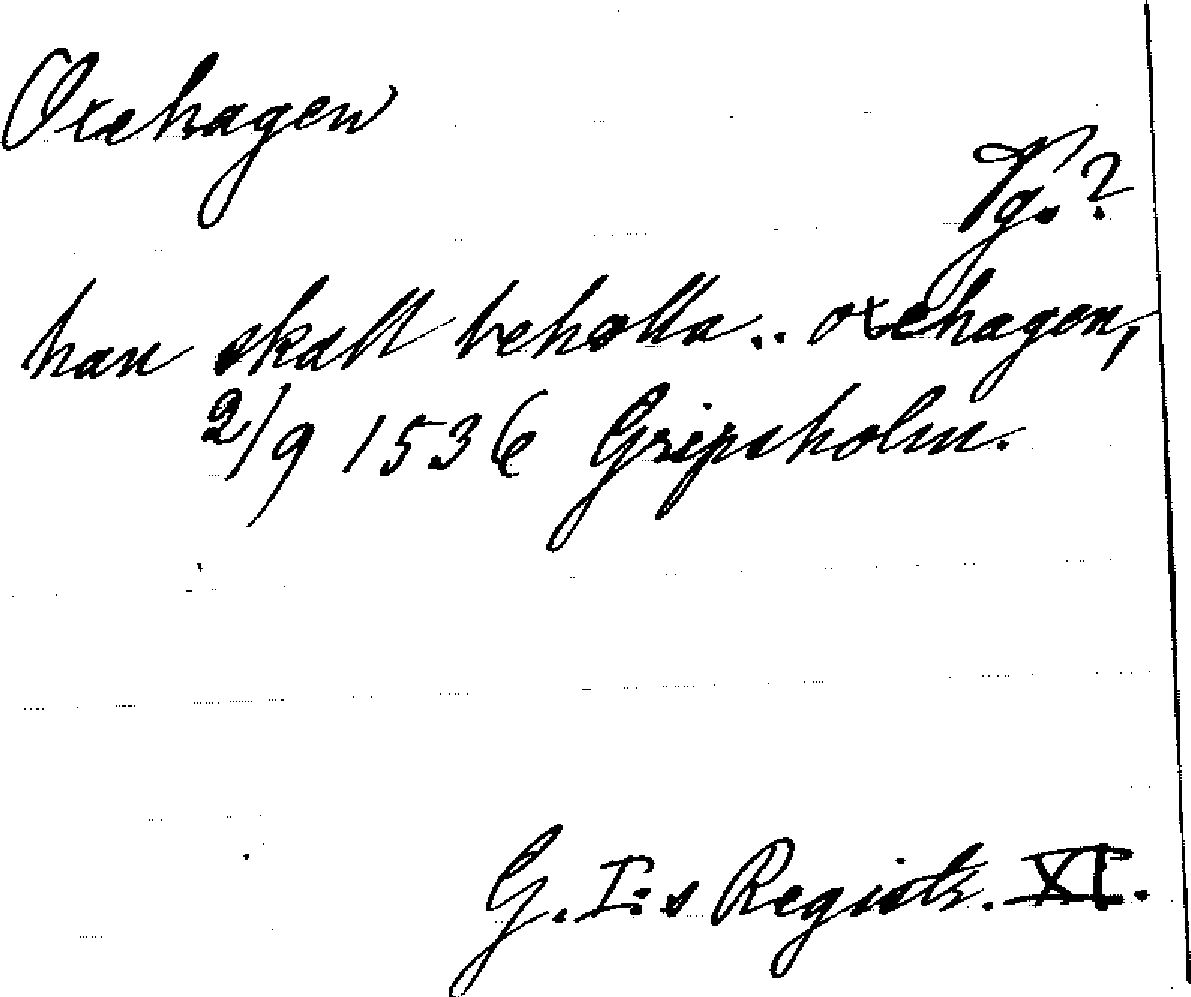 Oxehagen
Vg.?
han skall beholla .. oxehagen,
2/9 1536 Gripsholm.
G. I:s Registr. XI.